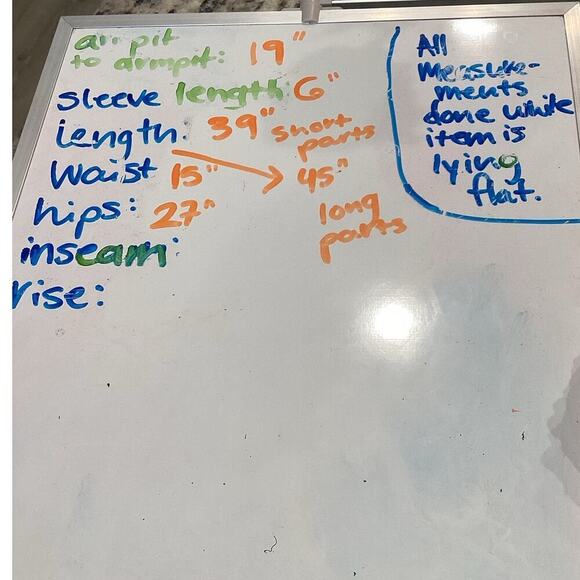 armpit
to armpit: 19"
sleeve length: 6"
length: 39" short
parts
waist 15" 45"
hips: 27" long
parts
inseam:
rise:
All
Measure-
ments
done while
item is
lying
flat.